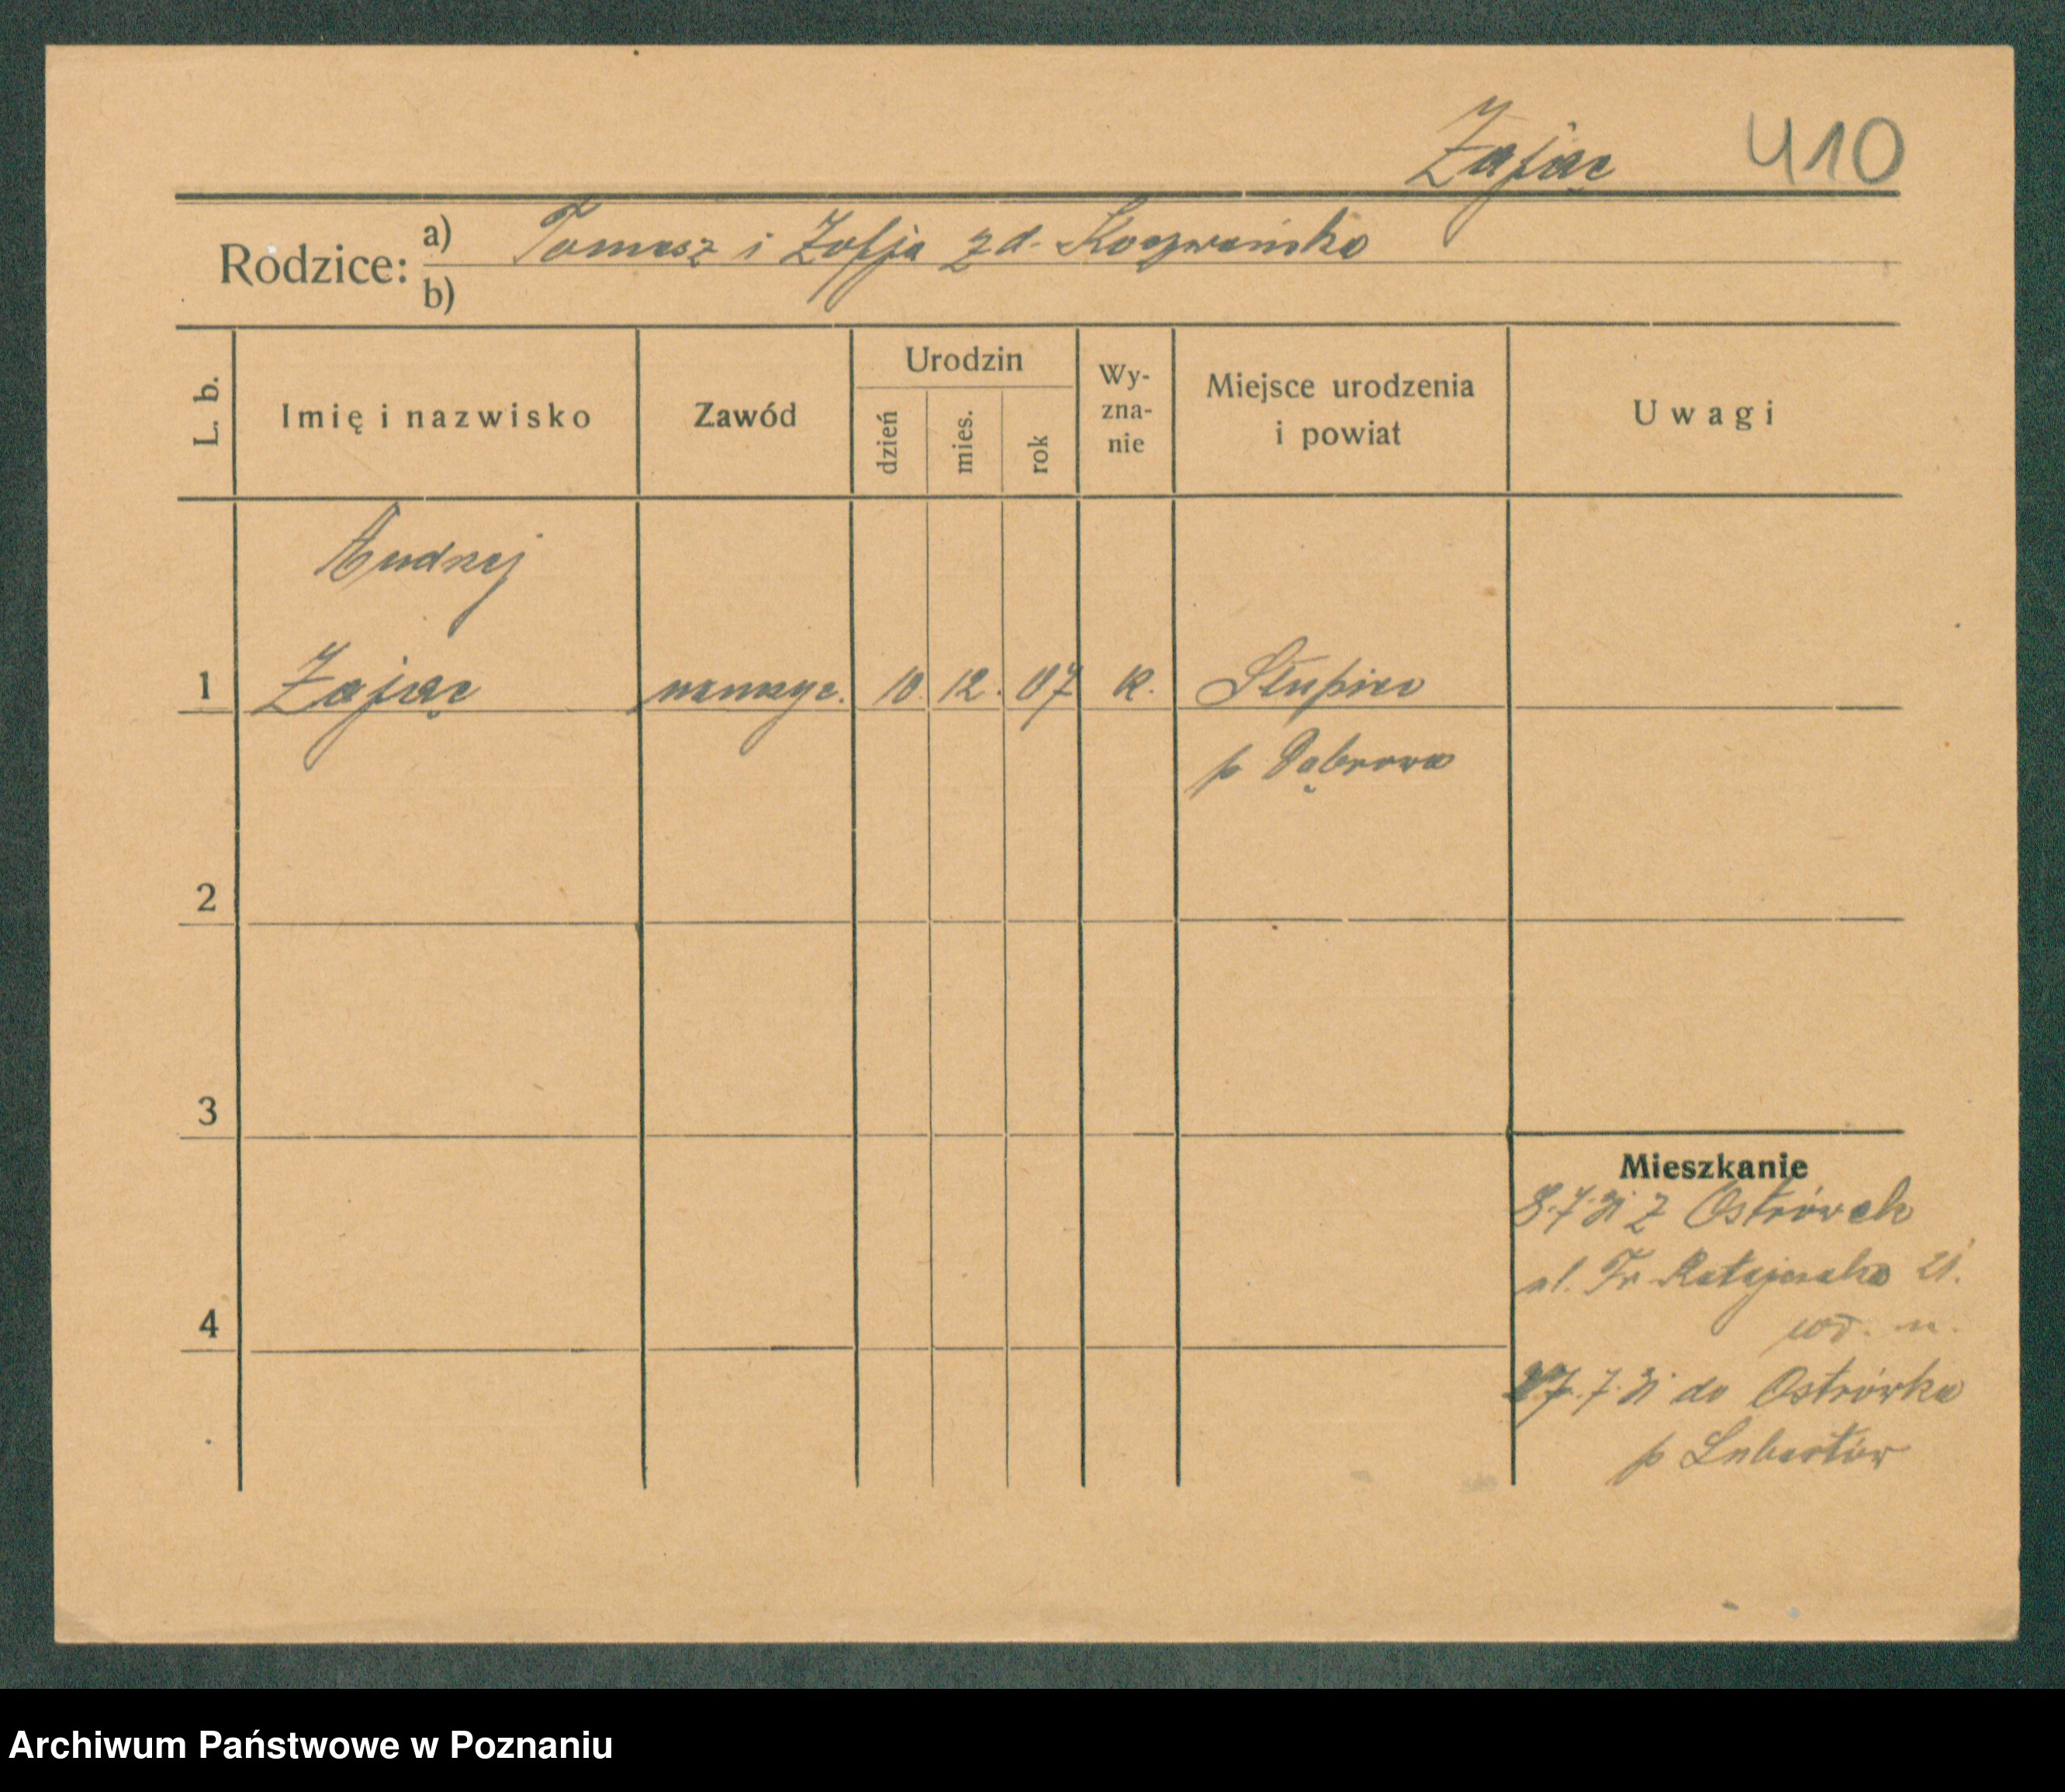 Zając 410
Rodzice: a) Tomasz i Zofja zd.
b)
L. b.
Imię i nazwisko
Zawód
Urodzin
dzień
mies.
rok
Wy-
zna-
nie
Miejsce urodzenia
i powiat
Uwagi
Andrzej
1 Zając 10. 12. 07 k. Słupiec
p Dąbrowa
2
3
4
Mieszkanie
8.7.31 z Ostrówek
ul. Fr Ratajczaka 21.
27.7.31 do Ostrówka
p Lubartów
Archiwum Państwowe w Poznaniu